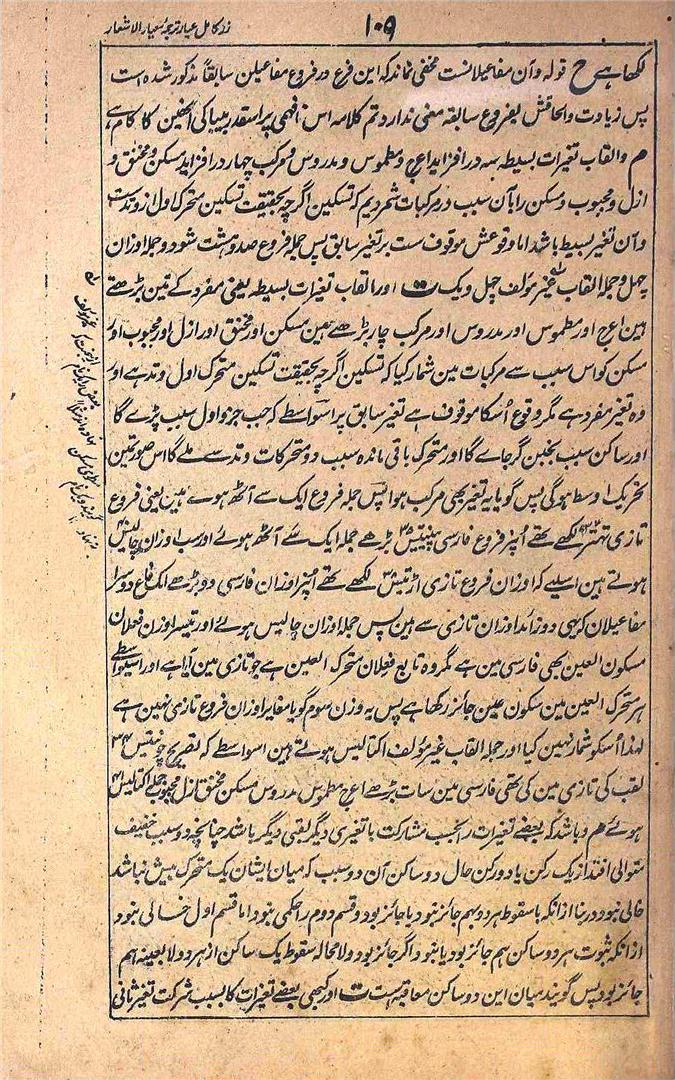 ۱۰۹
زر کامل عیار ترجمہ معیار الاشعار
لکھا ہے ح قولہ وآن مفاعیلانست مخفی نماند کہ این فرع در فروع مفاعیلن سابقاً مذکور شدہ است
پس زیادت والحاقش بفروع سابقہ معنی ندارد تم کلامہ اس نافہمی پر اسقدر بیباکی انھین کا کام ہے
م والقاب تغیرات بسیطہ سہ در افزاید اعرج ومطموس و مدروس ومرکب چہار در افزاید مسکن ومخنق و
ازل ومجبوب ومسکن را بآن سبب در مرکبات شمردیم کہ تسکین اگرچہ بحقیقت تسکین متحرک اول از وتدست
وآن تغیر بسیط باشد اما وقوعش موقوف ست بر تغیر سابق پس جملہ فروع صد وہشت شود وجملہ اوزان
چہل وجملہ القاب غیر مؤلف چہل ویک ت اور القاب تغیرات بسیطہ یعنی مفرد کے تین بڑھتے
ہین اعرج اور مطموس اور مدروس اور مرکب چار بڑھے ہین مسکن اور مخنق اور ازل اور مجبوب اور
مسکن کو اس سبب سے مرکبات مین شمار کیا کہ تسکین اگرچہ بحقیقت تسکین متحرک اول وتد ہے اور
وہ تغیر مفرد ہے مگر وقوع اُسکا موقوف ہے تغیر سابق پر اسواسطے کہ جب جزو اول سبب پڑے گا
اور ساکن سبب بخبن گر جاے گا اور متحرک باقی ماندہ سبب دو متحرکات وتد سے ملے گا اس صورتمین
تحریک اوسط ہوگی پس گویا یہ تغیر بھی مرکب ہوا پس جملہ فروع ایک سے آٹھ ہوے ہین یعنی فروع
تازی تہتر ۷۳ لکھے تھے اُنپر فروع فارسی پینتیس ۳۵ بڑھے جملہ ایک سے آٹھ ہوئے اور سب اوزان چالیس ۴۰
ہوتے ہین اسلیے کہ اوزان فروع تازی اڑتیس ۳۸ لکھے تھے اُنپر اوزان فارسی دو بڑھے ایک فاع دوسرا
مفاعیلان کہ یہی دو زائد اوزان تازی سے ہین پس جملہ اوزان چالیس ہوئے اور تیسرا وزن فعلان
مسکون العین بھی فارسی مین ہے مگر وہ تابع فعلان متحرک العین ہے جو تازی مین آیا ہے اور اسیواسطے
ہر متحرک العین مین سکون عین جائز رکھا ہے پس یہ وزن سوم گویا مغایر اوزان فروع تازی نہین ہے
لہذا اُسکو شمار نہین کیا اور جملہ القاب غیر مؤلف اکتالیس ہوئے ہین اسواسطے کہ تصریح چونتیس ۳۴
لقب کی تازی مین کی تھی فارسی مین سات بڑھے اعرج مطموس مدروس مسکن مخنق ازل مجبوب جملہ اکتالیس ۴۱
ہوئے م وباشد کہ بعضے تغیرات را بحسب مشارکت با تغیری دیگر لقبی دیگر باشد چنانچہ دو سبب خفیف
متوالی افتد از یک رکن یا دو رکن حال دو ساکن آن دو سبب کہ میان ایشان یک متحرک بیش نباشد
خالی نبود در بنا از انکہ یا سقوط ہر دو بہم جائز نبود یا جائز بود وقسم دوم را حکمی نبود اما قسم اول خالی نبود
از انکہ ثبوت ہر دو ساکن ہم جائز بود یا نبود واگر جائز بود ولا محالہ سقوط یک ساکن از ہر دو لا بعینہ ہم
جائز بود پس گویند میان این دو ساکن معاقبہ ہست ت اور کبھی بعضے تغیرات کا بسبب شرکت تغیر ثانی